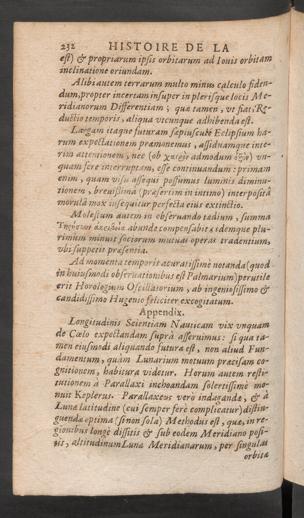 232 HISTOIRE DE LA
est) & propriarum ipsis orbitarum ad Iouis orbitam
inclinatione oriundam.
Alibi autem terrarum multo minus calculo fiden-
dum, propter incertam insuper in plerisque locis Me-
ridianorum Differentiam; quæ tamen, vt fiat Re-
ductio temporis, aliqua vicunque adhibenda est.
Longam itaque futuram sæpiuscule Eclipsium ha-
rum expectationem præmonemus, assiduamque inte-
rim attentionem, nec (ob admodum) vn-
quam fere interruptam, esse continuandum: primam
enim, quam visu assequi possumus luminis diminu-
tionem, breuissima (præsertim in intimo) interposita
morula mox insequitur perfecta eius extinctio.
Molestum autem in obseruando tædium, summa
abunde compensabit, & idemque plu-
rimum minuit sociorum mutuas operas tradentium,
vbi suppetit præsentia.
Ad momenta temporis accuratissime notanda (quod
in huiusmodi obseruationibus est Palmarium) perutile
erit Horologium Oscillatorium, ab ingeniosissimo &
candidissimo Hugenio feliciter excogitatum.
Appendix.
Longitudinis Scientiam Nauticam vix vnquam
de Cœlo expectandam supra asseruimus: si qua ta-
men eiusmodi aliquando futura est, non aliud Fun-
damentum, quàm Lunarium motuum præcisam co-
gnitionem, habitura videtur. Horum autem resti-
tutionem à Parallaxi inchoandam solertissimè mo-
nuit Keplerus. Parallaxeos verò indagandæ, & à
Lunæ latitudine (cui semper ferè complicatur) distin-
guenda optima (si non sola) Methodus est, quæ, in re-
gionibus longè dissitis & sub eodem Meridiano posi-
tis, altitudinum Lunæ Meridianarum, per singulas
orbitæ